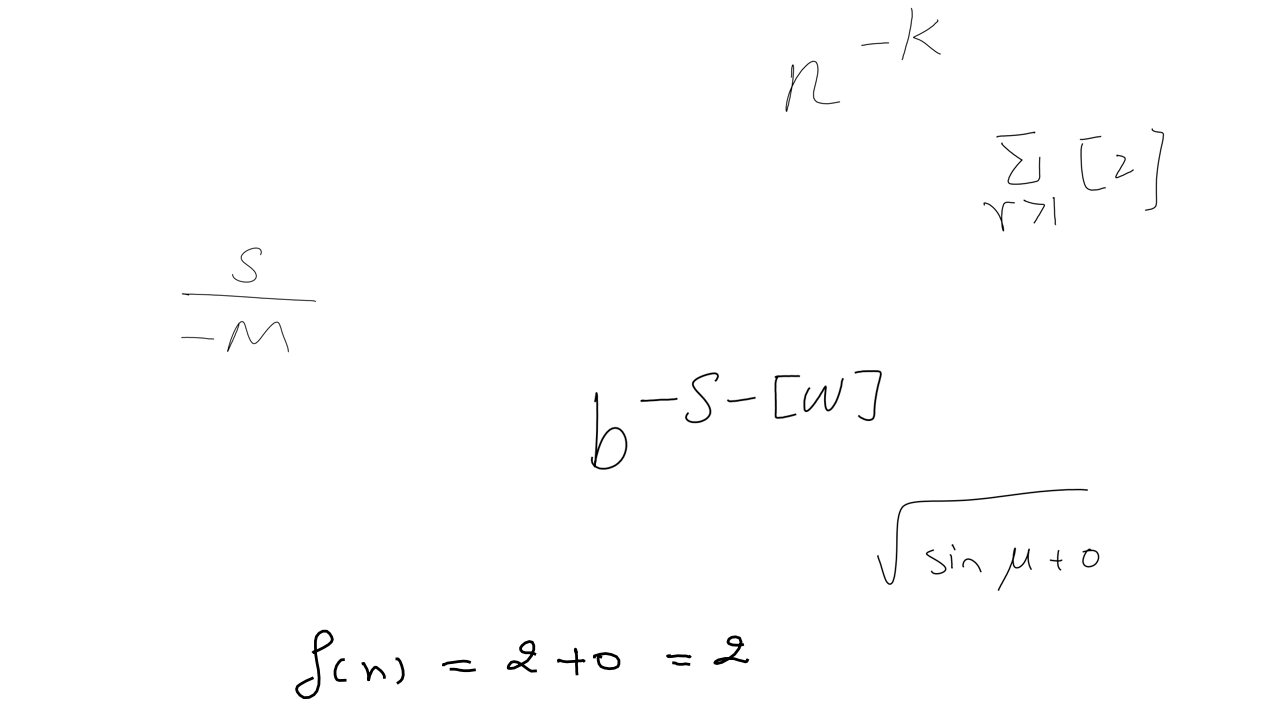 n^{-k}
\sum_{r>1} [2]
\frac{s}{-M}
b^{-s-[w]}
\sqrt{\sin \mu + 0}
f(n) = 2 + 0 = 2